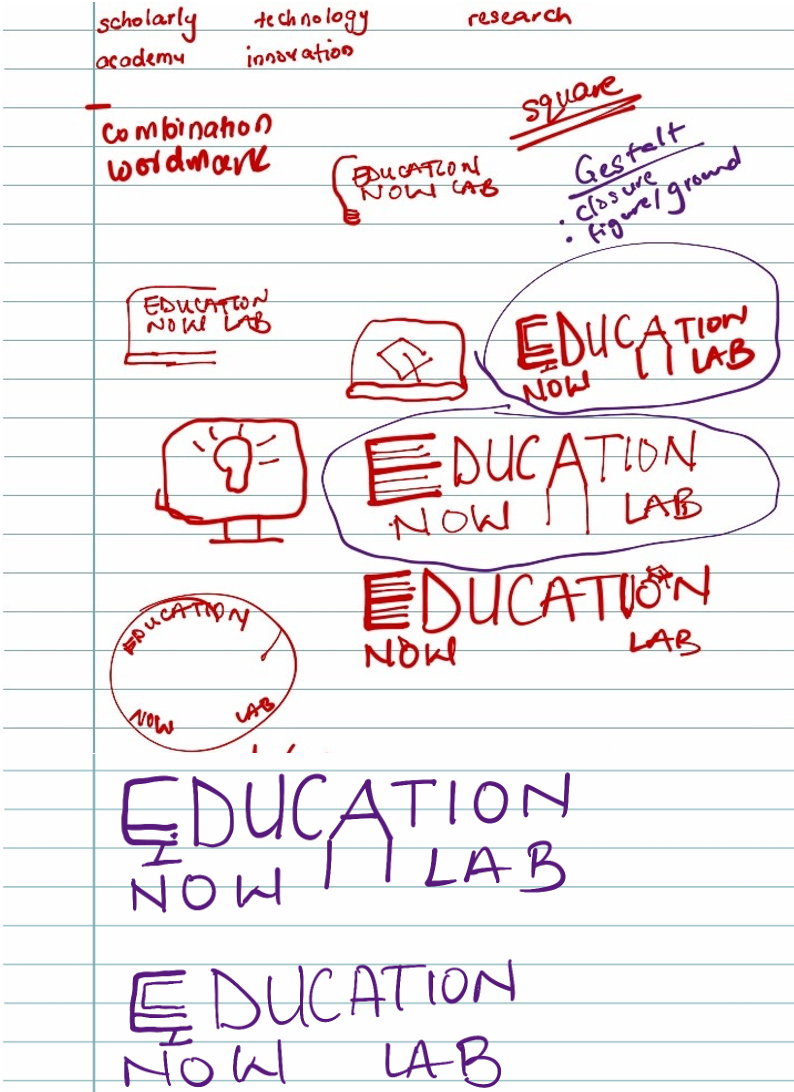 scholarly technology research
academy innovation
Combination
wordmark
square
Gestalt
• closure
• figure/ground
EDUCATION
NOW LAB
EDUCATION
NOW LAB
EDUCATION
NOW LAB
EDUCATION
NOW LAB
EDUCATION
NOW LAB
EDUCATION
NOW LAB
EDUCATION
NOW LAB
EDUCATION
NOW LAB